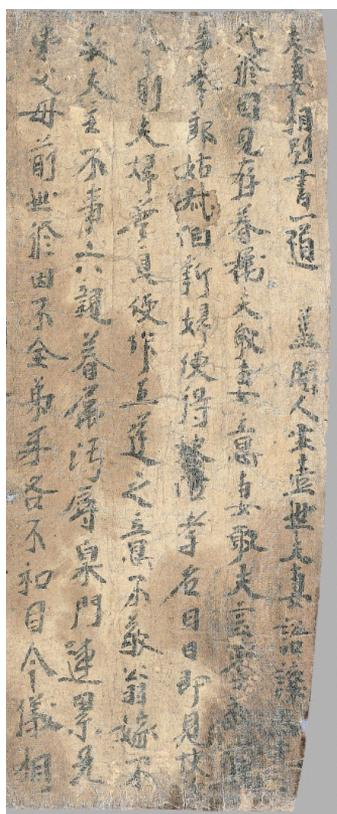 夫妻相別書一道 蓋聞人生壹世夫妻語讓為
代修因見存眷属夫取妻意妻取夫言
事奉郎姑叔伯新婦便得孝名日日即見快
則夫婦無良便作五逆之意不敬翁嫁不
敬夫主不事六親眷属污辱臬門連累兄
弟父母前世修因不全弟互各不和目今儀相